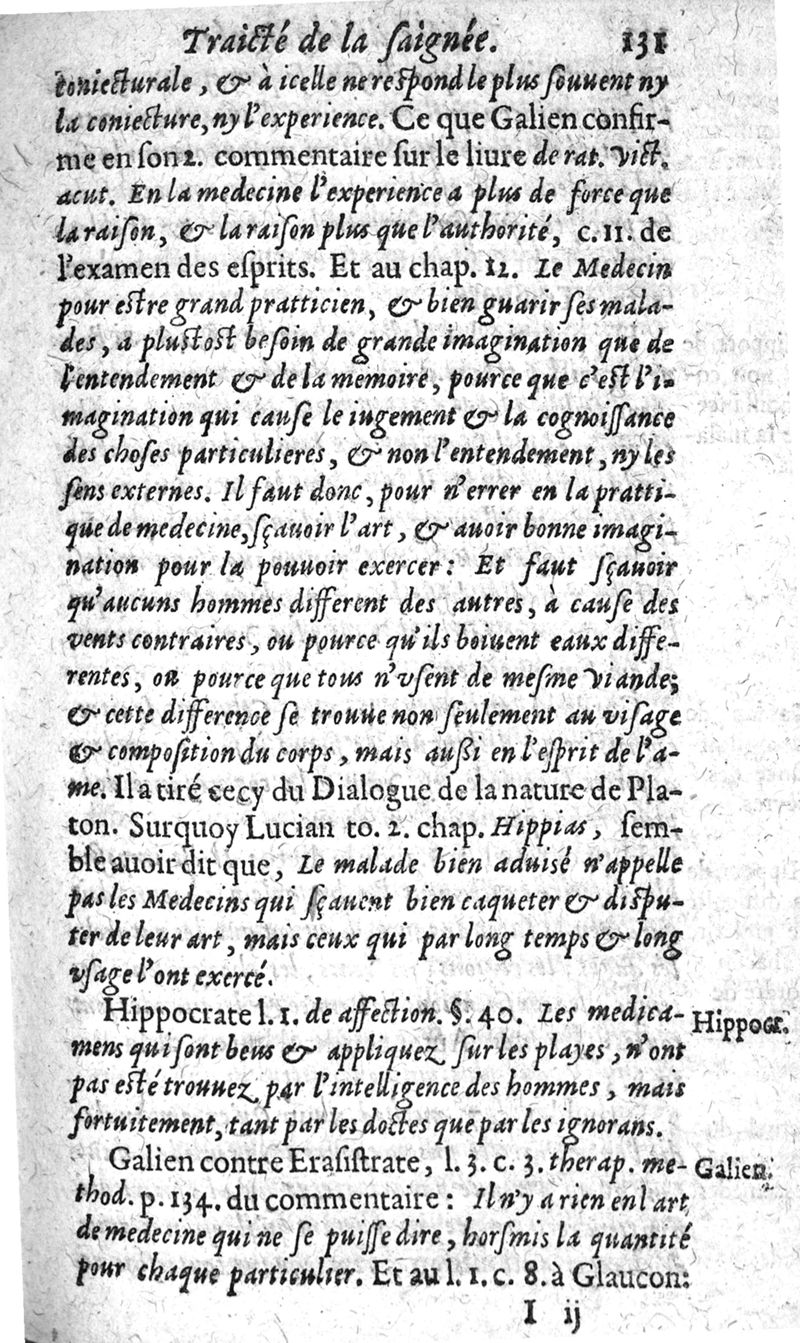 Traicté de la ſaignée. 131
coniecturale, & à icelle ne reſpond le plus ſouuent ny
la coniecture, ny l'experience. Ce que Galien confir-
me en ſon 2. commentaire ſur le liure de rat. vict.
acut. En la medecine l'experience a plus de force que
la raiſon, & la raiſon plus que l'authorité, c. 11. de
l'examen des eſprits. Et au chap. 12. Le Medecin
pour eſtre grand pratticien, & bien guarir ſes mala-
des, a pluſtoſt beſoin de grande imagination que de
l'entendement & de la memoire, pource que c'eſt l'i-
magination qui cauſe le iugement & la cognoiſſance
des choſes particulieres, & non l'entendement, ny les
ſens externes. Il faut donc, pour n'errer en la pratti-
que de medecine, ſçauoir l'art, & auoir bonne imagi-
nation pour la pouuoir exercer: Et faut ſçauoir
qu'aucuns hommes different des autres, à cauſe des
vents contraires, ou pource qu'ils boiuent eaux diffe-
rentes, ou pource que tous n'vſent de meſme viande;
& cette difference ſe trouue non ſeulement au viſage
& compoſition du corps, mais auſſi en l'eſprit de l'a-
me. Il a tiré cecy du Dialogue de la nature de Pla-
ton. Surquoy Lucian to. 2. chap. Hippias, ſem-
ble auoir dit que, Le malade bien aduisé n'appelle
pas les Medecins qui ſçauent bien caqueter & diſpu-
ter de leur art, mais ceux qui par long temps & long
vſage l'ont exercé.
Hippocrate l. 1. de affection. §. 40. Les medica- Hippocr.
mens qui ſont beus & appliquez ſur les playes, n'ont
pas eſté trouuez par l'intelligence des hommes, mais
fortuitement, tant par les doctes que par les ignorans.
Galien contre Eraſiſtrate, l. 3. c. 3. therap. me- Galien.
thod. p. 134. du commentaire: Il n'y a rien en l'art
de medecine qui ne ſe puiſſe dire, horſmis la quantité
pour chaque particulier. Et au l. 1. c. 8. à Glaucon:
I ij